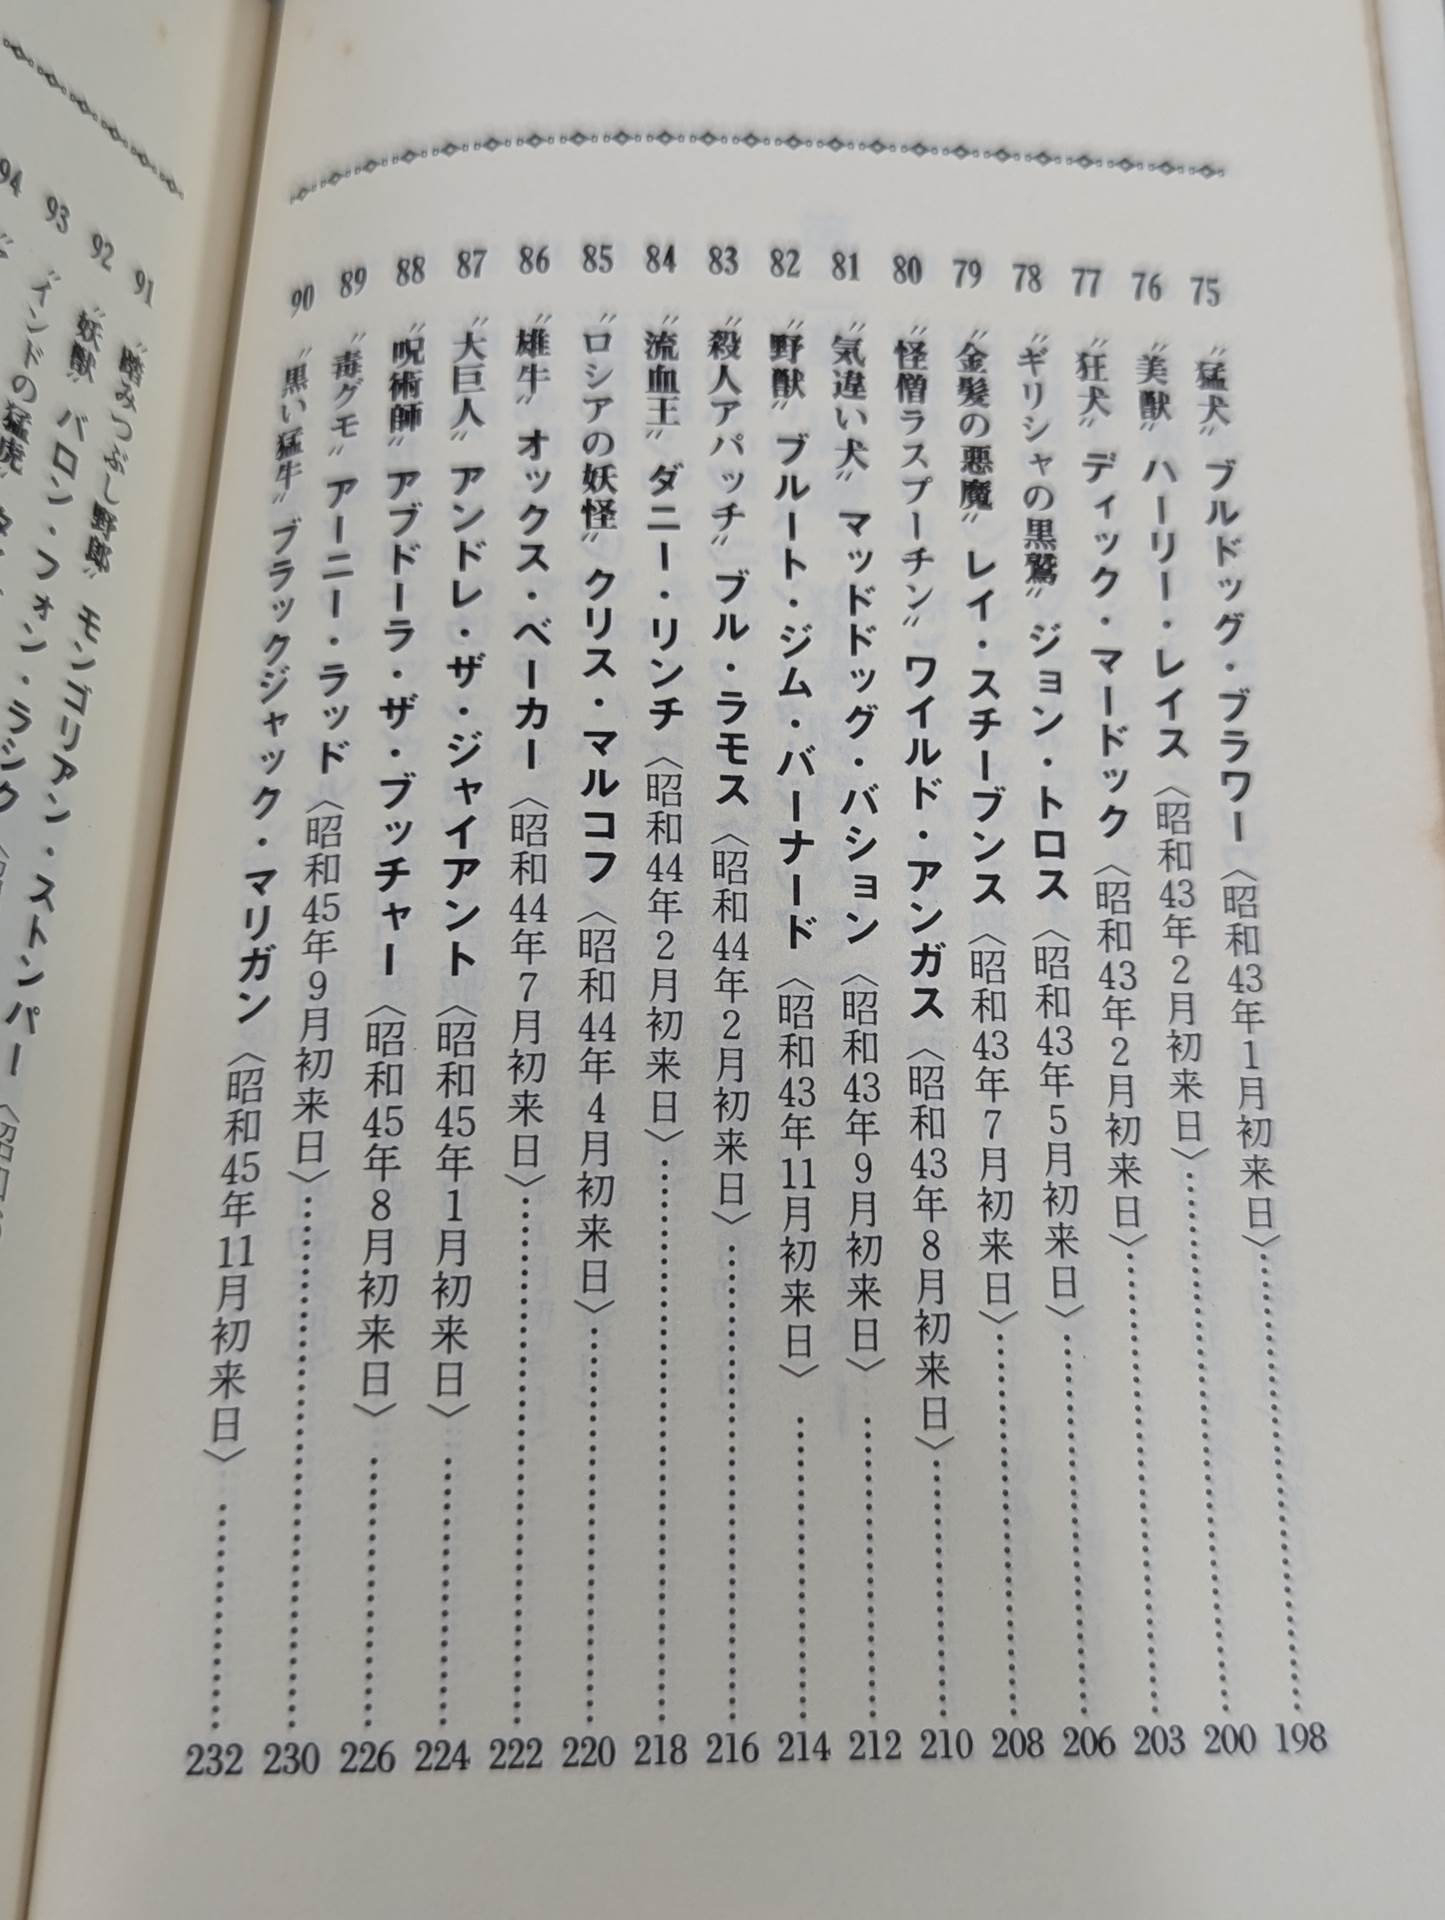 75 〝猛犬〟ブルドッグ・ブラワー〈昭和43年1月初来日〉……198
76 〝美獣〟ハーリー・レイス〈昭和43年2月初来日〉……200
77 〝狂犬〟ディック・マードック〈昭和43年2月初来日〉……203
78 〝ギリシャの黒鷲〟ジョン・トロス〈昭和43年5月初来日〉……206
79 〝金髪の悪魔〟レイ・スチーブンス〈昭和43年7月初来日〉……208
80 〝怪僧ラスプーチン〟ワイルド・アンガス〈昭和43年8月初来日〉……210
81 〝気違い犬〟マッドドッグ・バション〈昭和43年9月初来日〉……212
82 〝野獣〟ブルート・ジム・バーナード〈昭和43年11月初来日〉……214
83 〝殺人アパッチ〟ブル・ラモス〈昭和44年2月初来日〉……216
84 〝流血王〟ダニー・リンチ〈昭和44年2月初来日〉……218
85 〝ロシアの妖怪〟クリス・マルコフ〈昭和44年4月初来日〉……220
86 〝雄牛〟オックス・ベーカー〈昭和44年7月初来日〉……222
87 〝大巨人〟アンドレ・ザ・ジャイアント〈昭和45年1月初来日〉……224
88 〝呪術師〟アブドーラ・ザ・ブッチャー〈昭和45年8月初来日〉……226
89 〝毒グモ〟アーニー・ラッド〈昭和45年9月初来日〉……230
90 〝黒い猛牛〟ブラックジャック・マリガン〈昭和45年11月初来日〉……232
91 〝踏みつぶし野郎〟モンゴリアン・ストンパー〈昭和
92 〝妖獣〟バロン・フォン・ラシク
93 〝インドの猛虎〟
94